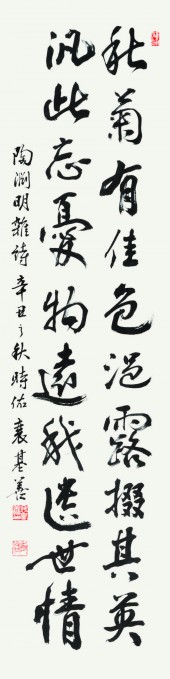 秋菊有佳色浥露掇其英
汎此忘憂物遠我遺世情
陶淵明雜詩辛丑之秋時佑襄基養